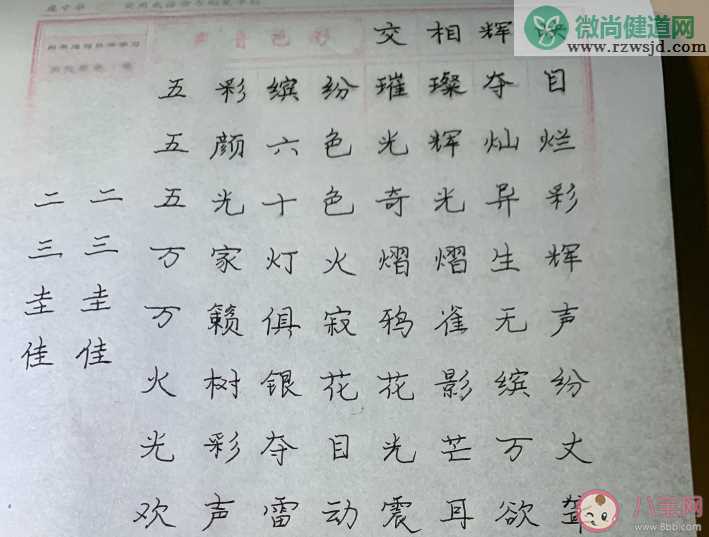 声音色形
交相辉映
五彩缤纷璀璨夺目
五颜六色光辉灿烂
二二五光十色奇光异彩
三三万家灯火熠熠生辉
圭圭万籁俱寂鸦雀无声
佳佳火树银花花影缤纷
光彩夺目光芒万丈
欢声雷动震耳欲聋
微尚健道网
www.rzwsjd.com
八宝网
www.8bb.com